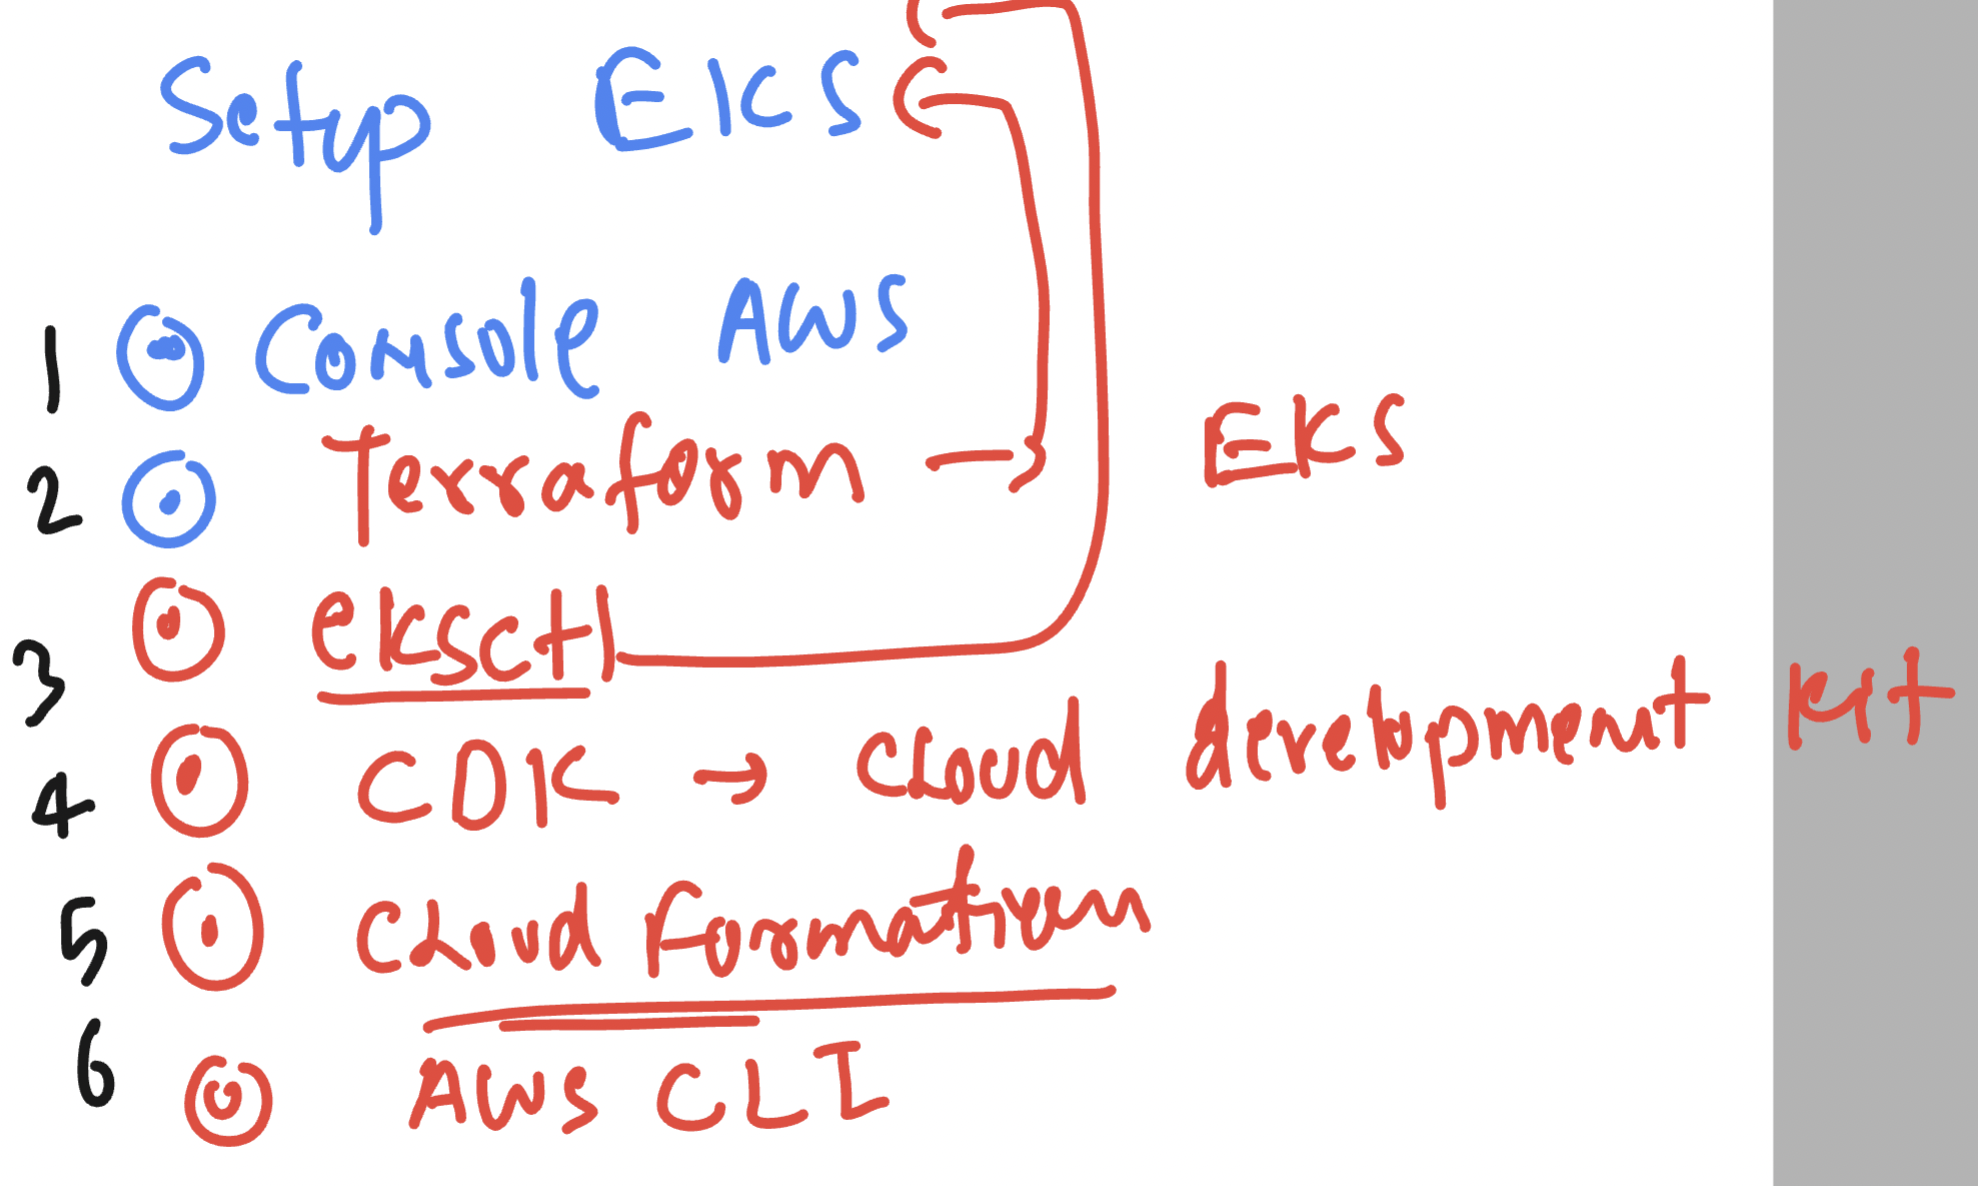 Setup EKS
1 Console AWS
2 Terraform → EKS
3 eksctl
4 CDK → Cloud development kit
5 Cloud Formation
6 AWS CLI